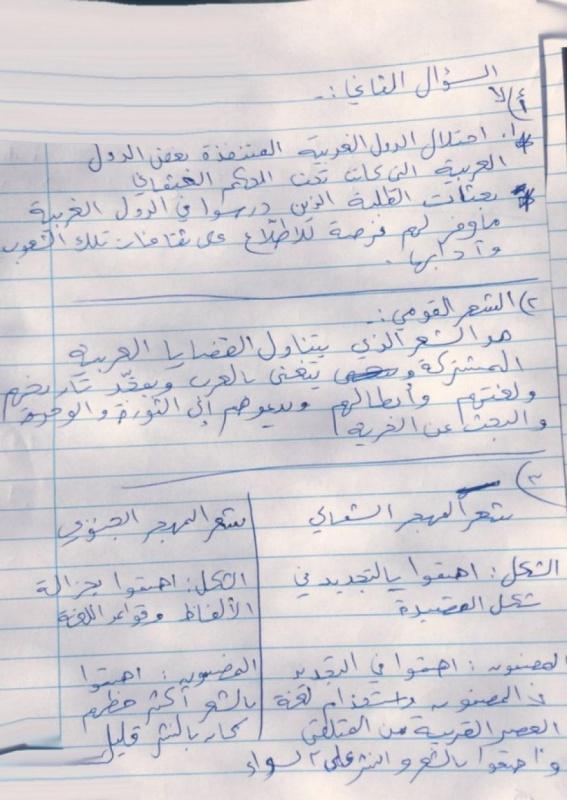 السؤال الثاني :-
أ) لا
1. احتلال الدول الغربية المتنفذة بعض الدول
العربية التي كانت تحت الحكم العثماني
* بعثات الطلبة الذين درسوا في الدول الغربية
ماوفر لهم فرصة للاطلاع على ثقافات تلك الشعوب
وآدابها.
2) الشعر القومي :-
هو الشعر الذي يتناول القضايا العربية
المشتركة و يتغنى بالعرب ويمجّد تاريخهم
ولغتهم وأبطالهم ويدعوهم إلى الثورة والوحدة
والبحث عن الحرية
3)
شعر المهجر الشمالي
شعر المهجر الجنوبي
الشكل: اهتموا بالتجديد في
شكل القصيدة
الشكل: اهتموا بجزالة
الألفاظ وقواعد اللغة
المضمون: اهتموا في التجديد
في المضمون واستخدام لغة
العصر القريبة من المتلقي
واهتموا بالشعر والنثر على السواء
المضمون: اهتموا
بالشعر أكثر حظهم
بالنثر قليل